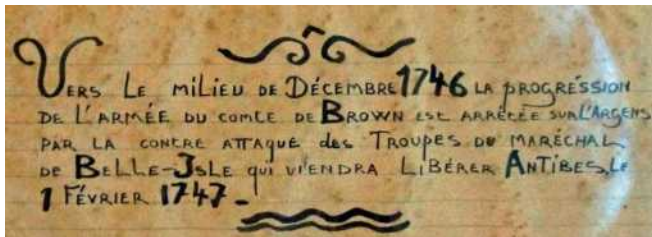 Vers Le milieu de Décembre 1746 la progression
de l'armée du comte de Brown est arrêtée sur l'Argens
par la contre attaque des Troupes du maréchal
de Belle-Isle qui viendra Libérer Antibes, le
1 Février 1747 -